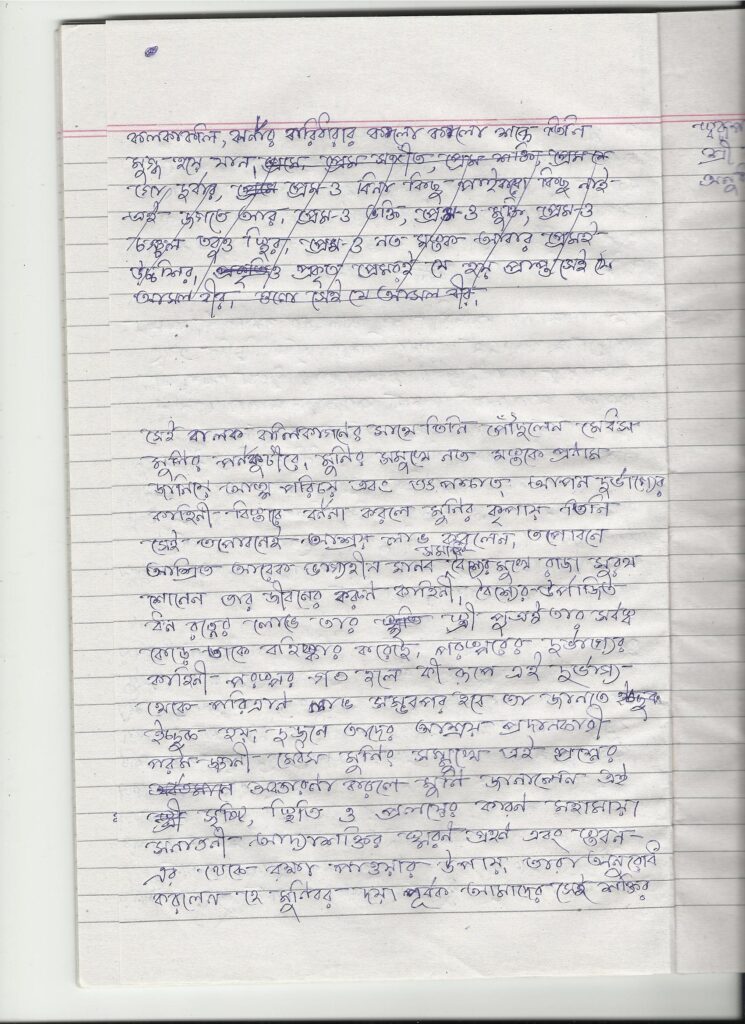 কলকাকলি, ঝর্নার বারিধারার কলো কলো শব্দে তিনি
মুগ্ধ হয়ে যান, প্রেমে, প্রেম সঙ্গীত, প্রেম শক্তি, প্রেম যে
গো দুর্বার, প্রেম প্রেম-ও বিনা কিছু নাই
এই জগতে আর, প্রেম-ও ভক্তি, প্রেম-ও মুক্তি, প্রেম-ও
চঞ্চল তবুও স্থির, প্রেম-ও নত মস্তক আবার প্রেমই
উচ্চশির, ও প্রকৃত প্রেমরই যে হয় প্রাপ্ত সেই যে
আসল বীর, ওগো সেই যে আসল বীর,
সেই বালক বালিকাগণের সাথে তিনি পৌঁছলেন মেধস
মুনির পর্নকুটীরে, মুনির সম্মুখে নত মস্তকে প্রনাম
জানিয়ে আত্ম পরিচয় এবং তৎপশ্চাত্ আপন দুর্ভাগ্যের
কাহিনী বিস্তারে বর্ননা করলে মুনির কৃপায় তিনি
সেই তপোবনেই আশ্রয় লাভ করলেন, তপোবনে
আশ্রিত আরেক ভাগ্যহীন মানব সমাধি বৈশ্যের মুখে রাজা সুরথ
শোনেন তার জীবনের করুন কাহিনী, বৈশ্যের উপার্জিত
ধন রত্নের লোভে তার স্ত্রী পুত্রই তার সর্বস্ব
কেড়ে তাকে বহিষ্কার করেছে, পরস্পরের দুর্ভাগ্যের
কাহিনী পরস্পর গত হলে কী রূপে এই দুর্ভাগ্য
থেকে পরিত্রান লাভ সম্ভবপর হবে তা জানতে ইচ্ছুক
ইচ্ছুক হয়, দুজনে তাদের আশ্রয় প্রদানকারী
পরম জ্ঞানী মেধস মুনির সম্মুখে এই প্রশ্নের
অবতারনা করলে মুনি জানালেন এই
সৃষ্টি, স্থিতি ও প্রলয়ের কারন মহামায়া
সনাতনী আদ্যাশক্তির স্মরন এবং
এর থেকে রক্ষা পাওয়ার উপায়, তারা অনুরোধ
করলেন হে মুনিবর দয়া পূর্বক আমাদের সেই শক্তির